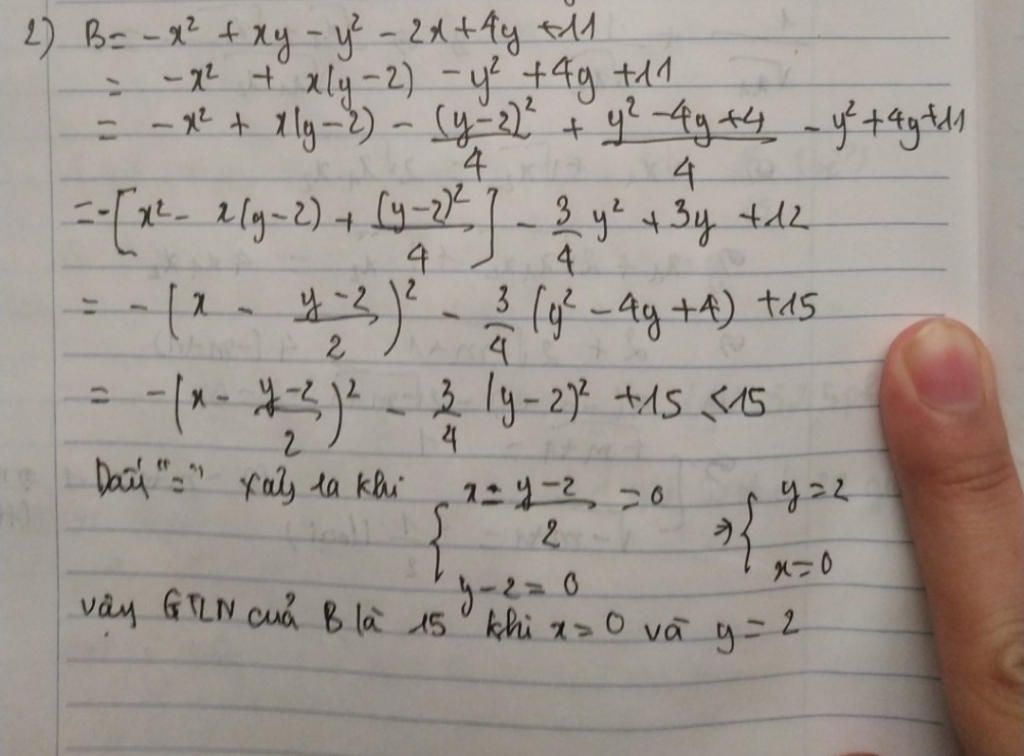 2) B = -x² + xy - y² - 2x + 4y + 11
= -x² + x(y-2) - y² + 4y + 11
= -x² + x(y-2) - (y-2)²/4 + (y² - 4y + 4)/4 - y² + 4y + 11
= -[x² - x(y-2) + (y-2)²/4] - 3/4 y² + 3y + 12
= -(x - (y-2)/2)² - 3/4 (y² - 4y + 4) + 15
= -(x - (y-2)/2)² - 3/4 (y-2)² + 15 ≤ 15
Dấu "=" xảy ra khi { x - (y-2)/2 = 0 ⇒ { y = 2
y - 2 = 0 x = 0
vậy GTLN của B là 15 khi x = 0 và y = 2